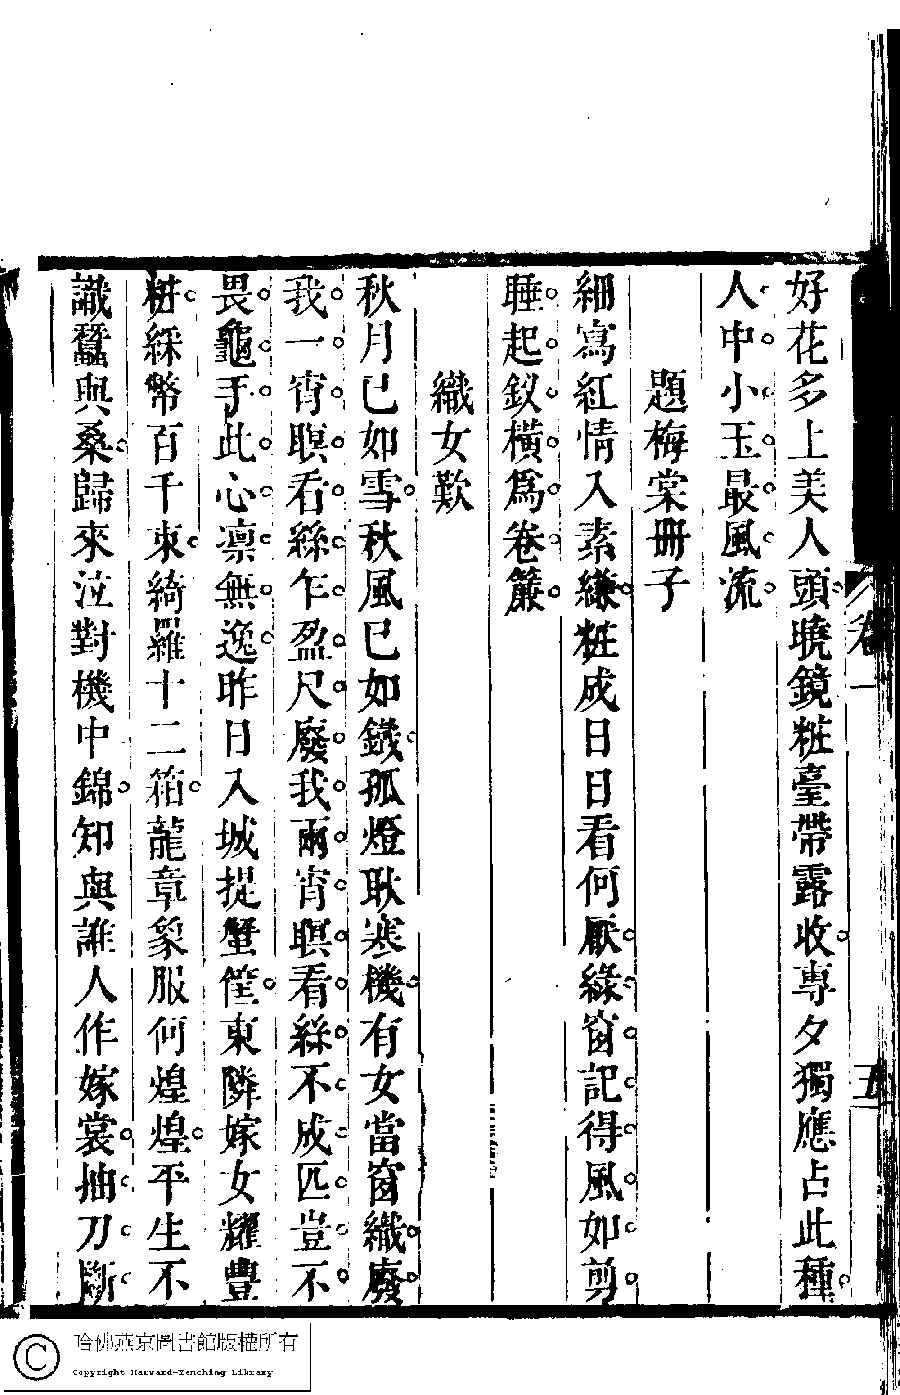 好花多上美人頭曉鏡粧臺帶露收專夕獨應占此種
人中小玉最風流
題梅棠冊子
細寫紅情入素縑粧成日日看何厭綠窗記得風如剪
睡起釵橫爲卷簾
織女歎
秋月已如雪秋風已如鐵孤燈耿寒機有女當窗織廢
我一宵瞑看絲乍盈尺廢我兩宵瞑看絲不成匹豈不
畏龜手此心凛無逸昨日入城提蟹筐東隣嫁女耀豐
粧綵幣百千束綺羅十二箱龍章象服何煌煌平生不
識蠶與桑歸來泣對機中錦知與誰人作嫁裳抽刀斷
卷一
五
哈佛燕京圖書館版權所有
Copyright Harvard-Yenching Library